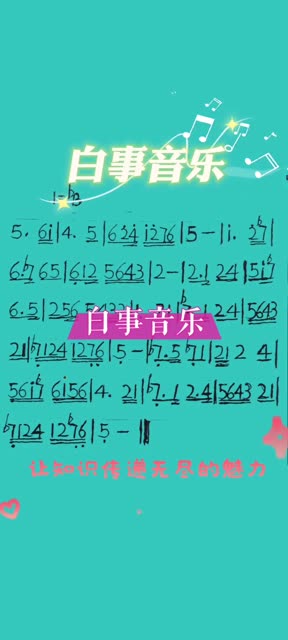 白事音乐
1=♭B
5. 6i|4. 5|6 i276|5 -|i.
6♭7 65|612 5643|2-|2.1 24|5i♭7
6.5|256
白事音乐
|2.1 24|5643
21|♭7124 1276|5 -|♭7.5 ♭71|21 2 4|
56i♭7 6156|4. 21|♭7.1 2.4|5643 21|
♭7124 12♭76|5 -‖
让知识传递无尽的魅力